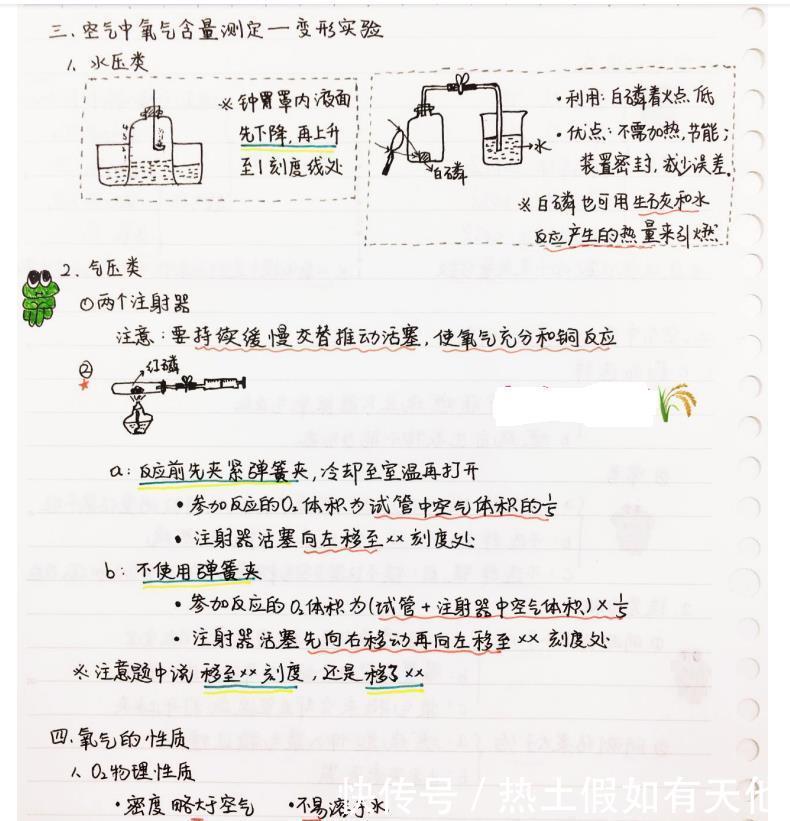 三、空气中氧气含量测定一变形实验
1、水压类
※钟罩罩内液面
先下降,再上升
至1刻度线处
白磷
水
·利用:白磷着火点低
·优点:不需加热,节能;
装置密封,减少误差。
※白磷也可用生石灰和水
反应产生的热量来引燃
2、气压类
①两个注射器
注意:要持续缓慢交替推动活塞,使氧气充分和铜反应
②
红磷
a:反应前先夹紧弹簧夹,冷却至室温再打开
·参加反应的O₂体积为试管中空气体积的1/5
·注射器活塞向左移至××刻度处
b:不使用弹簧夹
·参加反应的O₂体积为(试管+注射器中空气体积)×1/5
·注射器活塞先向右移动再向左移至××刻度处
※注意题中说移至××刻度,还是移了××
四.氧气的性质
1、O₂物理性质
·密度略大于空气 ·不易溶于水
快传号/热土假如有天化